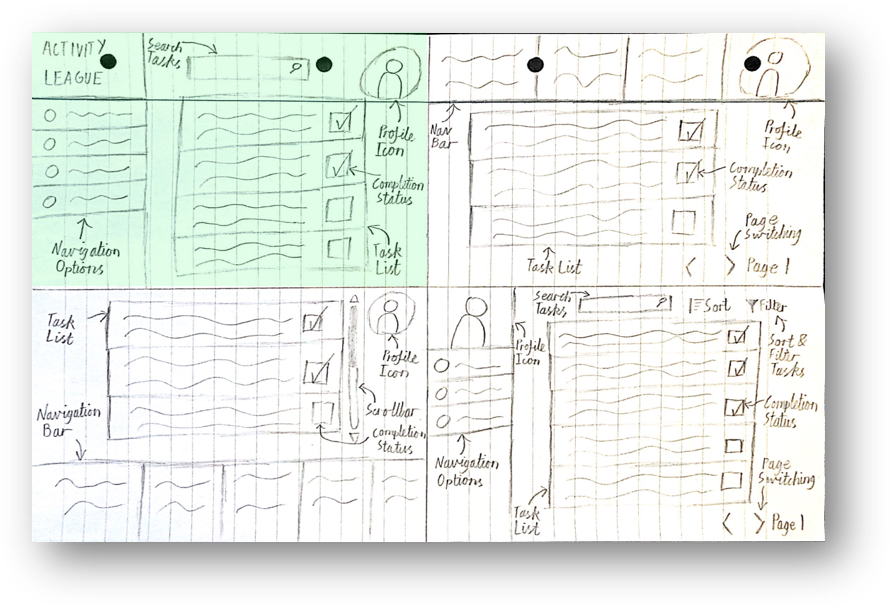 ACTIVITY
LEAGUE
Search
Tasks
Profile
Icon
Completion
Status
Task
List
Navigation
Options
Nav
Bar
Profile
Icon
Completion
Status
Page
Switching
Task List
< > Page 1
Task
List
Profile
Icon
Scrollbar
Completion
Status
Navigation
Bar
Search
Tasks
Sort
Filter
Profile
Icon
Sort &
Filter
Tasks
Completion
Status
Navigation
Options
Page
Switching
Task
List
< > Page 1